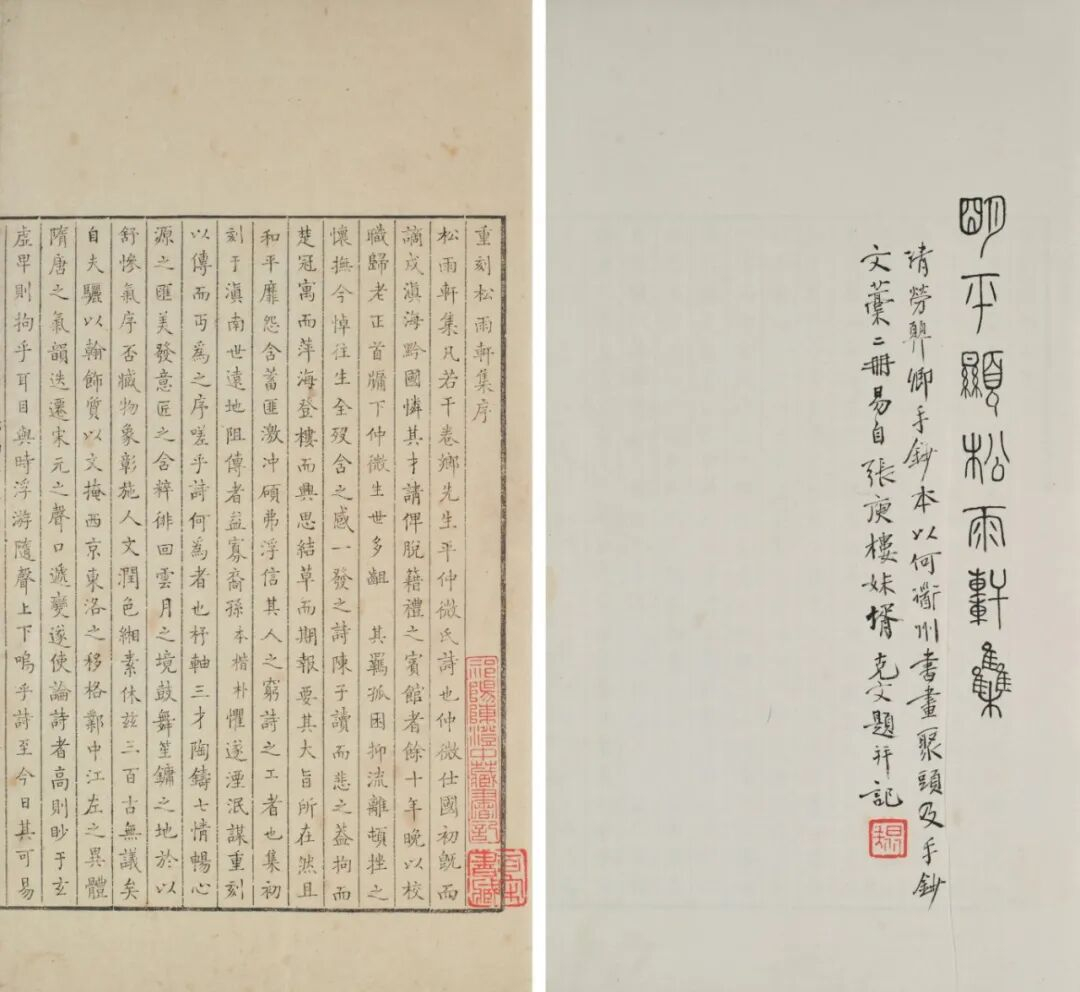 明平顯松雨軒集
清勞巽卿手鈔本以何衢州書畫聚頭及手鈔
文藁二冊易自張庾樓妹壻克文題并記
重刻松雨軒集序
松雨軒集凡若干卷鄉先生平仲微氏詩也仲微仕國初旣而
謫戍滇海黔國憐其才請俾脫籍禮之賓館者餘十年晚以校
職歸老正首牖下仲微生世多齟　其羈孤困抑流離頓挫之
懷撫今悼往生全歿舍之感一發之詩陳子讀而悲之蓋拘而
楚冠寓而萍海登樓而興思結草而期報要其大旨所在然且
和平靡怨含蓄匪激冲碩弗浮信其人之窮詩之工者也集初
刻于滇南世遠地阻傳者益寡裔孫本楷朴懼遂湮泯謀重刻
以傳而丐為之序嗟乎詩何為者也杼軸三才陶鑄七情暢心
源之匯美發意匠之含粹徘回雲月之境鼓舞笙鏞之地於以
舒慘氣序否臧物象彰施人文潤色緗素休兹三百古無議矣
自夫驪以翰飾質以文掩西京東洛之移格鄴中江左之異體
隋唐之氣韻迭遷宋元之聲口遞變遂使論詩者高則眇于玄
虛卑則拘乎耳目與時浮游隨聲上下嗚乎詩至今日其可易
祁陽陳澄中藏書記